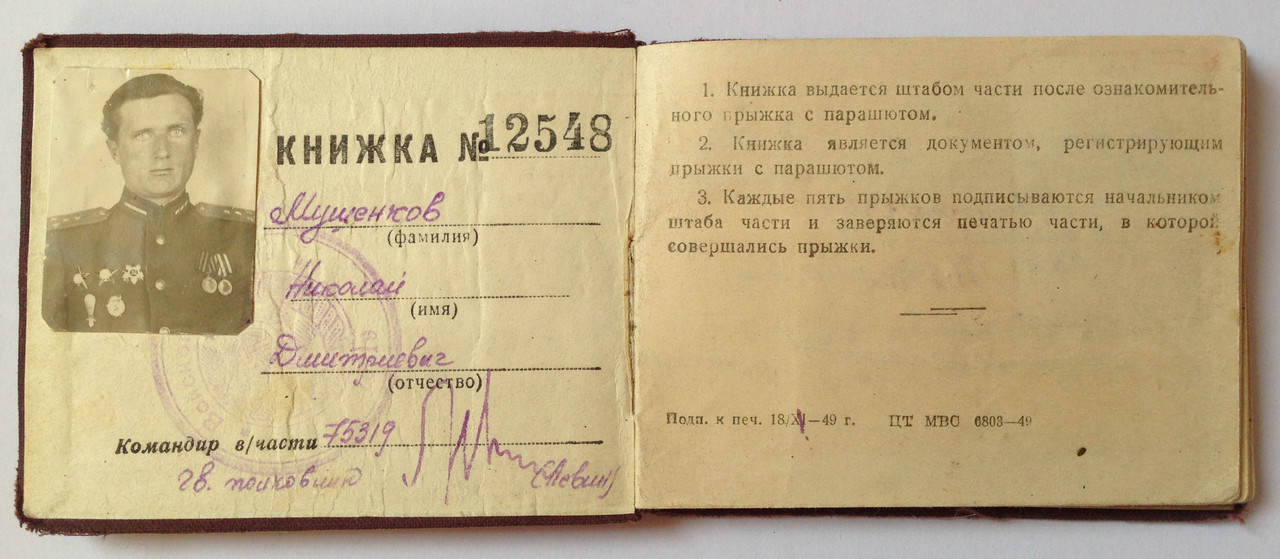 КНИЖКА № 12548
Мушенков
(фамилия)
Николай
(имя)
Дмитриевич
(отчество)
Командир в/части 75319
гв. полковник (Левин)
Войсков
1. Книжка выдается штабом части после ознакомитель-
ного прыжка с парашютом.
2. Книжка является документом, регистрирующим
прыжки с парашютом.
3. Каждые пять прыжков подписываются начальником
штаба части и заверяются печатью части, в которой
совершались прыжки.
Подп. к печ. 18/XI—49 г. ЦТ МВС 6803—49